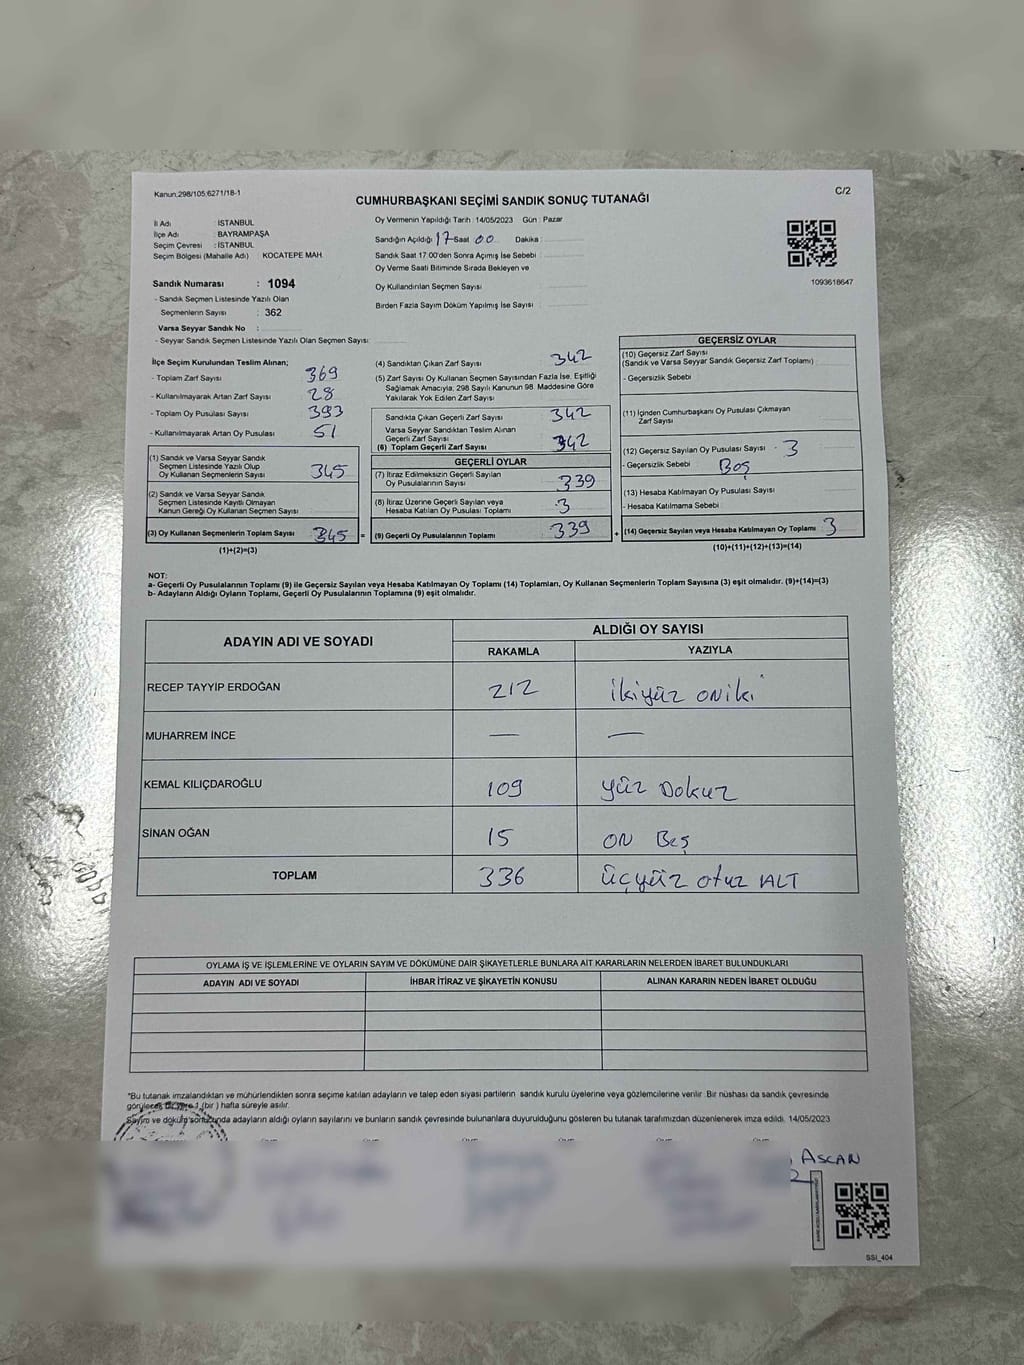 Kanun;298/105;6271/18-1
C/2
CUMHURBAŞKANI SEÇİMİ SANDIK SONUÇ TUTANAĞI
İl Adı : İSTANBUL
İlçe Adı : BAYRAMPAŞA
Seçim Çevresi : İSTANBUL
Seçim Bölgesi (Mahalle Adı) KOCATEPE MAH.
Sandık Numarası : 1094
- Sandık Seçmen Listesinde Yazılı Olan
Seçmenlerin Sayısı : 362
Varsa Seyyar Sandık No :
- Seyyar Sandık Seçmen Listesinde Yazılı Olan Seçmen Sayısı:
Oy Vermenin Yapıldığı Tarih : 14/05/2023 Gün : Pazar
Sandığın Açıldığı 17 Saat 00 Dakika :
Sandık Saat 17.00'den Sonra Açımış İse Sebebi
Oy Verme Saati Bitiminde Sırada Bekleyen ve
Oy Kullandırılan Seçmen Sayısı
Birden Fazla Sayım Döküm Yapılmış İse Sayısı
1093618647
İlçe Seçim Kurulundan Teslim Alınan;
- Toplam Zarf Sayısı 369
- Kullanılmayarak Artan Zarf Sayısı 28
- Toplam Oy Pusulası Sayısı 393
- Kullanılmayarak Artan Oy Pusulası 51
(1) Sandık ve Varsa Seyyar Sandık
Seçmen Listesinde Yazılı Olup
Oy Kullanan Seçmenlerin Sayısı 345
(2) Sandık ve Varsa Seyyar Sandık
Seçmen Listesinde Kayıtlı Olmayan
Kanun Gereği Oy Kullanan Seçmen Sayısı
(3) Oy Kullanan Seçmenlerin Toplam Sayısı 345 =
(1)+(2)=(3)
(4) Sandıktan Çıkan Zarf Sayısı 342
(5) Zarf Sayısı Oy Kullanan Seçmen Sayısından Fazla İse, Eşitliği
Sağlamak Amacıyla, 298 Sayılı Kanunun 98. Maddesine Göre
Yakılarak Yok Edilen Zarf Sayısı
Sandıkta Çıkan Geçerli Zarf Sayısı 342
Varsa Seyyar Sandıktan Teslim Alınan
Geçerli Zarf Sayısı
(6) Toplam Geçerli Zarf Sayısı 342
GEÇERLİ OYLAR
(7) İtiraz Edilmeksizin Geçerli Sayılan
Oy Pusulalarının Sayısı 339
(8) İtiraz Üzerine Geçerli Sayılan veya
Hesaba Katılan Oy Pusulası Toplamı 3
(9) Geçerli Oy Pusulalarının Toplamı 339 +
GEÇERSİZ OYLAR
(10) Geçersiz Zarf Sayısı
(Sandık ve Varsa Seyyar Sandık Geçersiz Zarf Toplamı)
- Geçersizlik Sebebi
(11) İçinden Cumhurbaşkanı Oy Pusulası Çıkmayan
Zarf Sayısı
(12) Geçersiz Sayılan Oy Pusulası Sayısı 3
- Geçersizlik Sebebi Boş
(13) Hesaba Katılmayan Oy Pusulası Sayısı
- Hesaba Katılmama Sebebi
(14) Geçersiz Sayılan veya Hesaba Katılmayan Oy Toplamı 3
(10)+(11)+(12)+(13)=(14)
NOT:
a- Geçerli Oy Pusulalarının Toplamı (9) ile Geçersiz Sayılan veya Hesaba Katılmayan Oy Toplamı (14) Toplamları, Oy Kullanan Seçmenlerin Toplam Sayısına (3) eşit olmalıdır. (9)+(14)=(3)
b- Adayların Aldığı Oyların Toplamı, Geçerli Oy Pusulalarının Toplamına (9) eşit olmalıdır.
ADAYIN ADI VE SOYADI
ALDIĞI OY SAYISI
RAKAMLA YAZIYLA
RECEP TAYYIP ERDOĞAN 212 ikiyüz oniki
MUHARREM İNCE — —
KEMAL KILIÇDAROĞLU 109 yüz Dokuz
SİNAN OĞAN 15 ON Beş
TOPLAM 336 üçyüz otuz ALT
OYLAMA İŞ VE İŞLEMLERİNE VE OYLARIN SAYIM VE DÖKÜMÜNE DAİR ŞİKAYETLERLE BUNLARA AİT KARARLARIN NELERDEN İBARET BULUNDUKLARI
ADAYIN ADI VE SOYADI İHBAR İTİRAZ VE ŞİKAYETİN KONUSU ALINAN KARARIN NEDEN İBARET OLDUĞU
*Bu tutanak imzalandıktan ve mühürlendikten sonra seçime katılan adayların ve talep eden siyasi partilerin sandık kurulu üyelerine veya gözlemcilerine verilir. Bir nüshası da sandık çevresinde
görülecek bir yere 1 (bir ) hafta süreyle asılır.
Sayım ve döküm sonucunda adayların aldığı oyların sayılarını ve bunların sandık çevresinde bulunanlara duyurulduğunu gösteren bu tutanak tarafımızdan düzenlenerek imza edildi. 14/05/2023
ASCAN
SSI_404